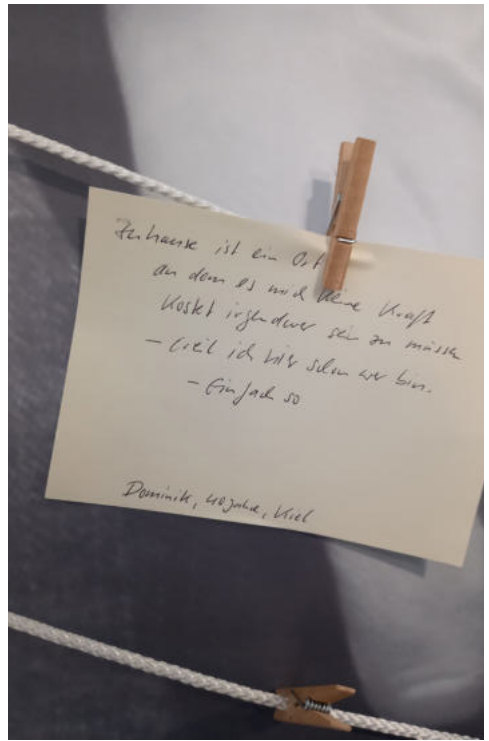 Zuhause ist ein Ort
an dem es mich keine Kraft
kostet irgendwer sein zu müssen
– weil ich hier schon wer bin.
– Einfach so
Dominik, 40 Jahre, Kiel